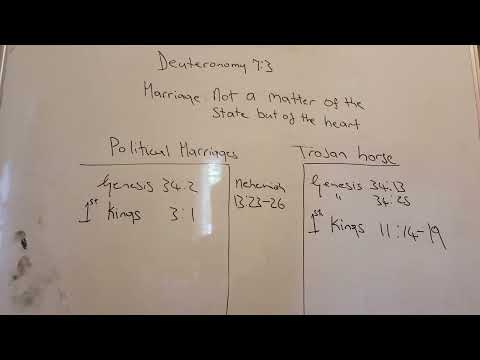 Deuteronomy 7:3
Marriage: Not a matter of the
State but of the heart
Political Marriages
Genesis 34:2
1st Kings 3:1
Nehemiah
13:23-26
Trojan horse
Genesis 34:13
" 34:25
1st Kings 11:14-19